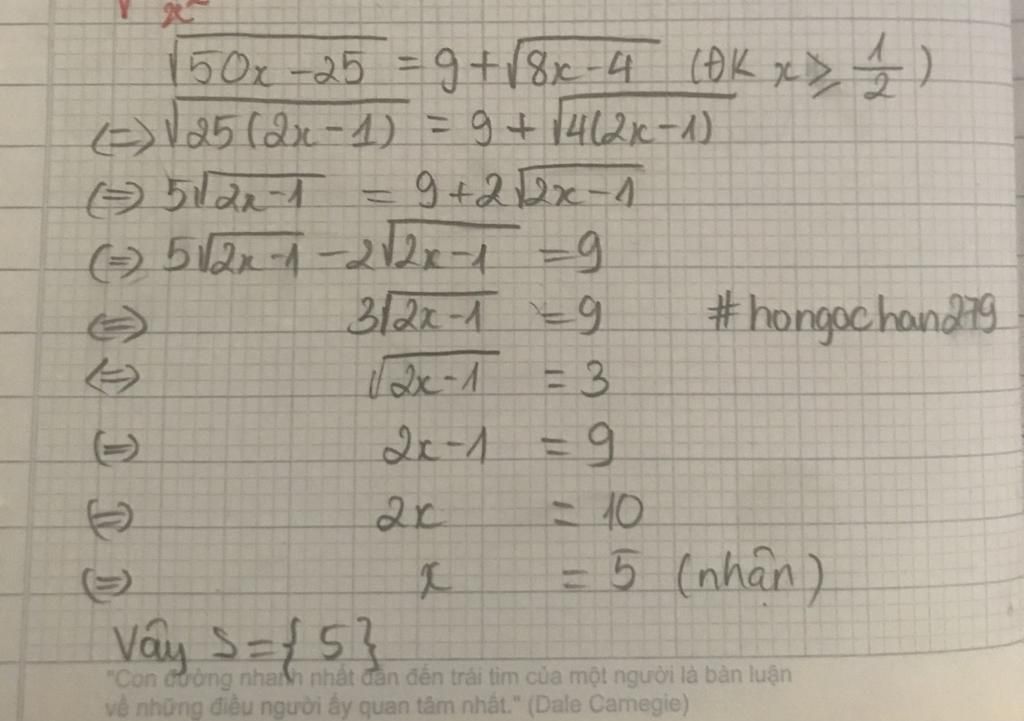 x²
√(50x-25) = 9+√(8x-4) (ĐK x ≥ 1/2)
(=)√(25(2x-1)) = 9 + √(4(2x-1))
(=) 5√(2x-1) = 9+2√(2x-1)
(=) 5√(2x-1) -2√(2x-1) = 9
(=) 3√(2x-1) = 9 #hongochan279
(=) √(2x-1) = 3
(=) 2x-1 = 9
(=) 2x = 10
(=) x = 5 (nhận)
Vậy S={5}
"Con đường nhanh nhất dẫn đến trái tim của một người là bàn luận
về những điều người ấy quan tâm nhất." (Dale Carnegie)